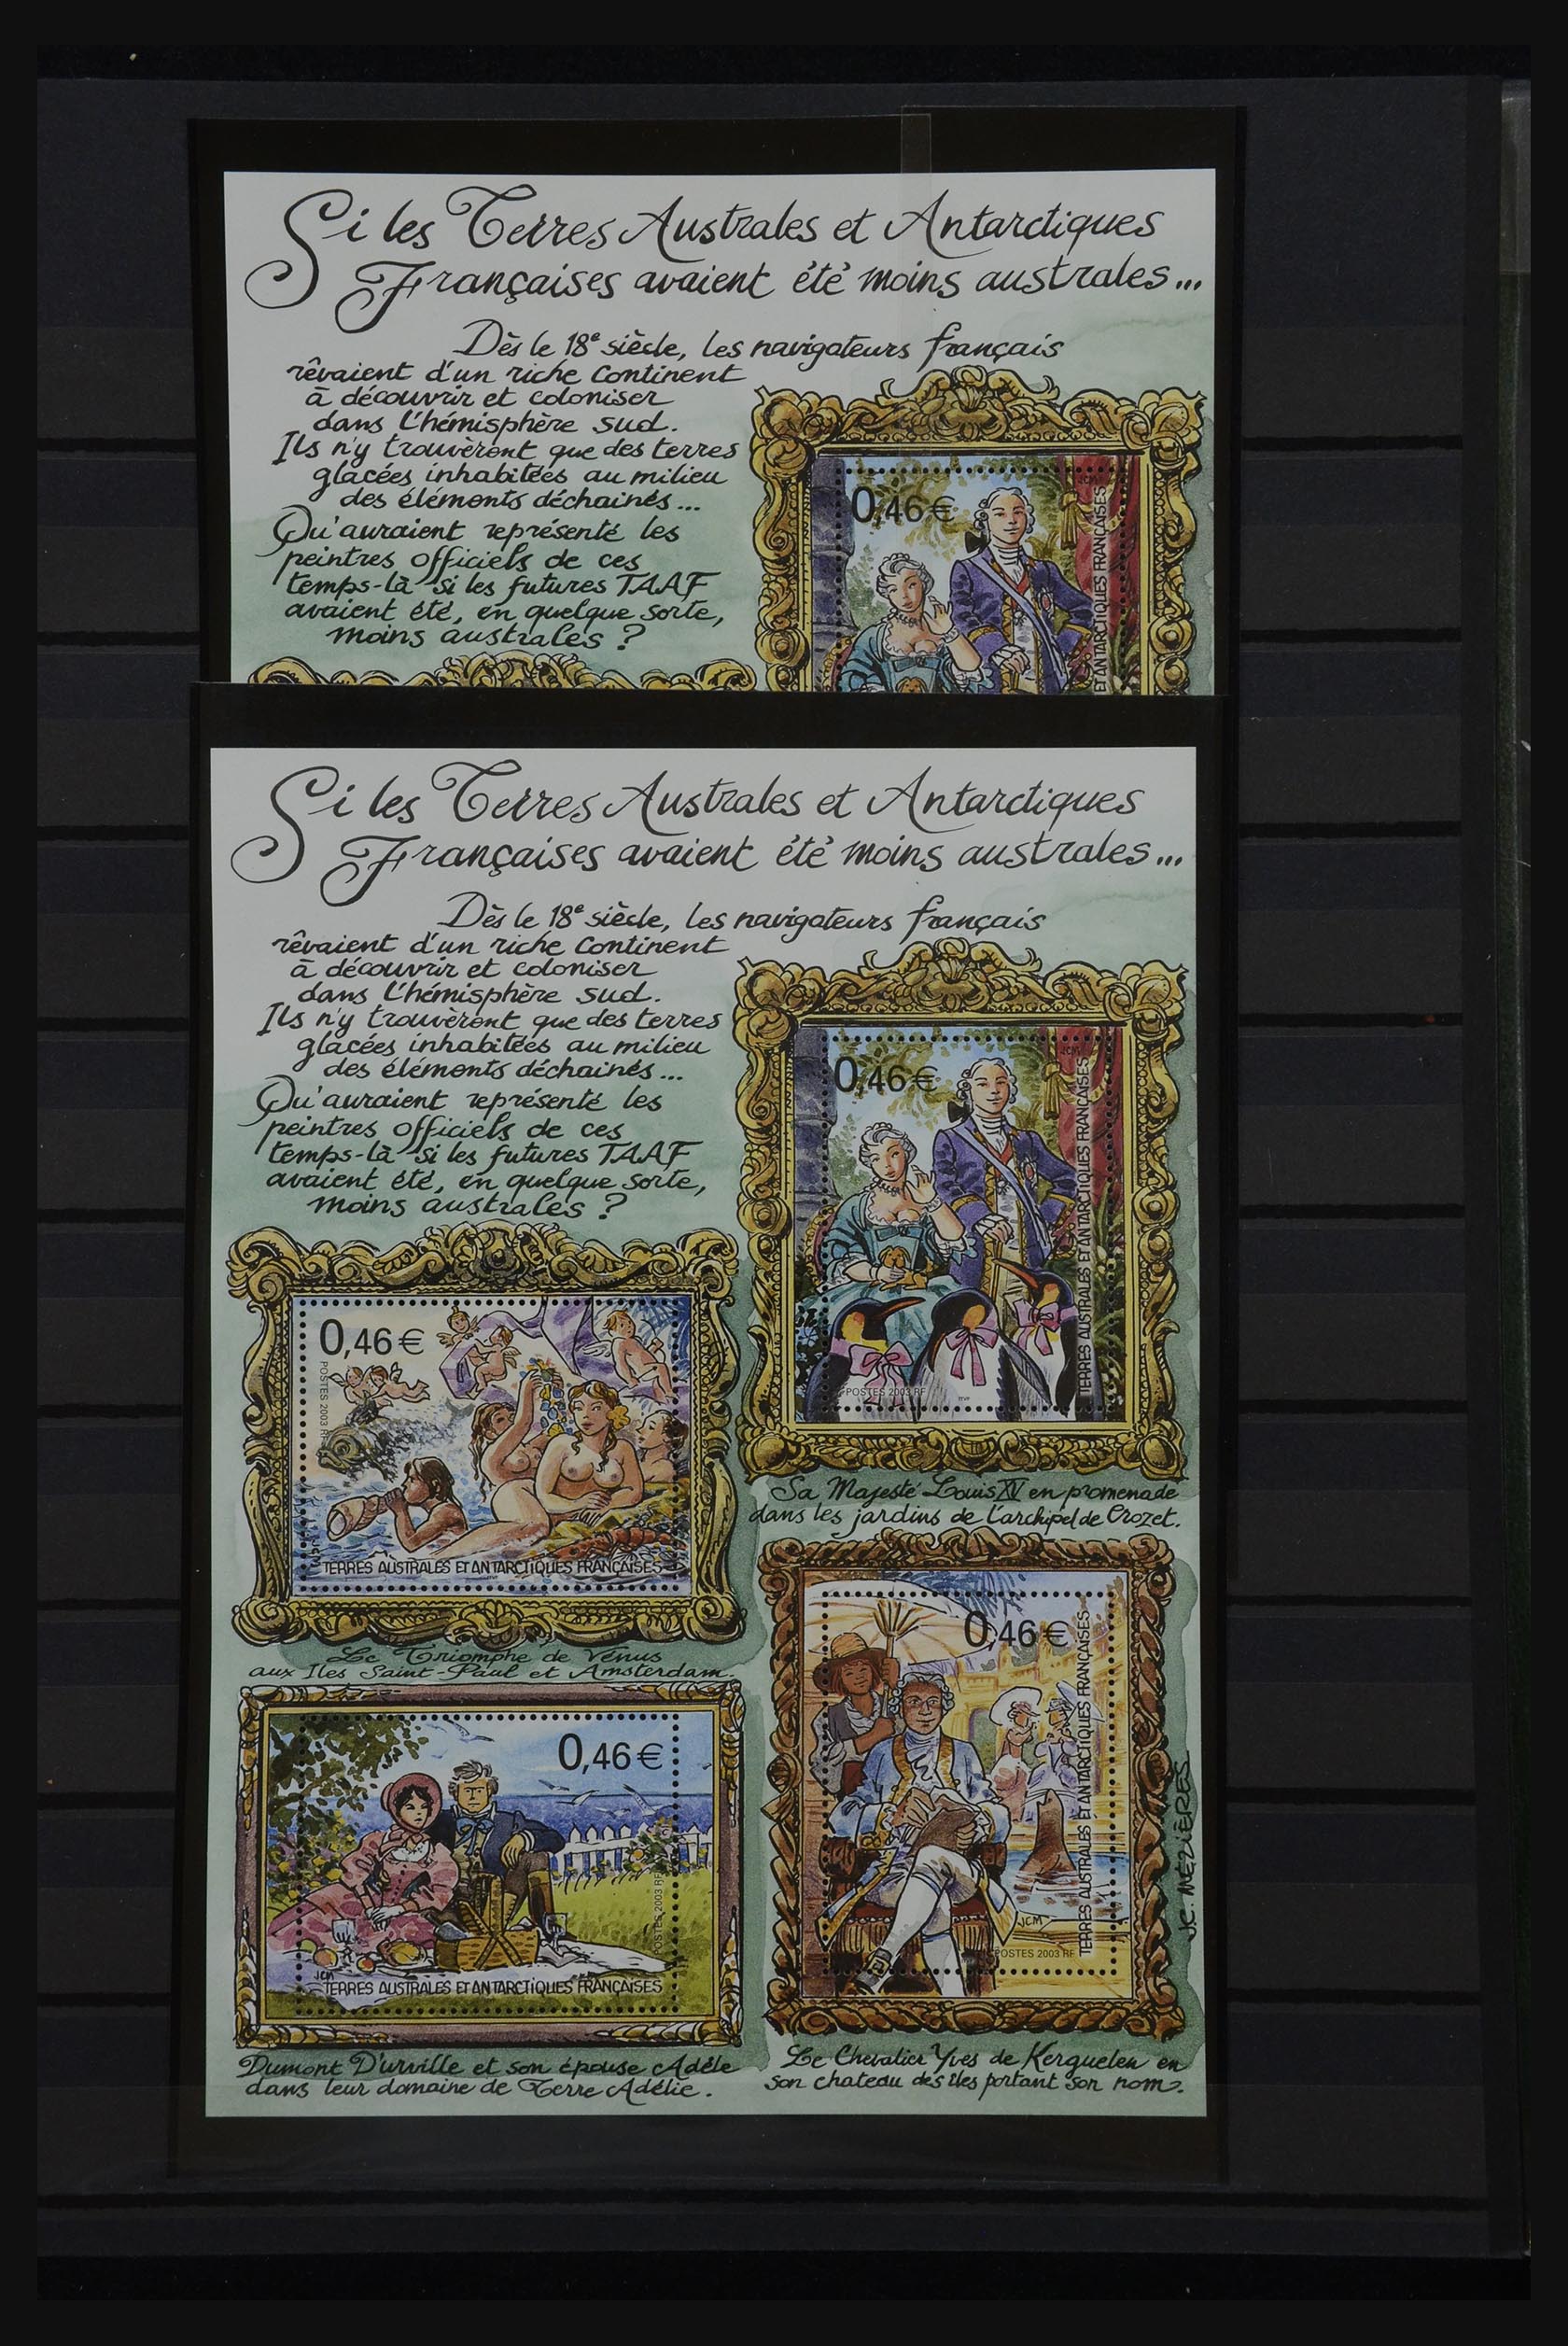 Si les Terres Australes et Antarctiques
Françaises avaient été moins australes...
Dès le 18e siècle, les navigateurs français
rêvaient d'un riche continent
à découvrir et coloniser
dans l'hémisphère sud.
Ils n'y trouvèrent que des terres
glacées inhabitées au milieu
des éléments déchainés...
Qu'auraient représenté les
peintres officiels de ces
temps-là si les futures TAAF
avaient été, en quelque sorte,
moins australes ?
0,46€
JCM
ET ANTARCTIQUES FRANÇAISES
Si les Terres Australes et Antarctiques
Françaises avaient été moins australes...
Dès le 18e siècle, les navigateurs français
rêvaient d'un riche continent
à découvrir et coloniser
dans l'hémisphère sud.
Ils n'y trouvèrent que des terres
glacées inhabitées au milieu
des éléments déchainés...
Qu'auraient représenté les
peintres officiels de ces
temps-là si les futures TAAF
avaient été, en quelque sorte,
moins australes ?
0,46€
JCM
TERRES AUSTRALES ET ANTARCTIQUES FRANÇAISES
POSTES 2003 RF
Sa Majesté Louis XV en promenade
dans les jardins de l'archipel de Crozet.
0,46€
POSTES 2003 RF
JCM
TERRES AUSTRALES ET ANTARCTIQUES FRANÇAISES
Le Triomphe de Vénus
aux Iles Saint-Paul et Amsterdam.
0,46€
POSTES 2003 RF
JCM
TERRES AUSTRALES ET ANTARCTIQUES FRANÇAISES
Dumont D'urville et son épouse Adèle
dans leur domaine de Terre Adélie.
0,46€
TERRES AUSTRALES ET ANTARCTIQUES FRANÇAISES
JCM
POSTES 2003 RF
J.C. MÉZIÈRES
Le Chevalier Yves de Kerguelen en
son chateau des îles portant son nom.